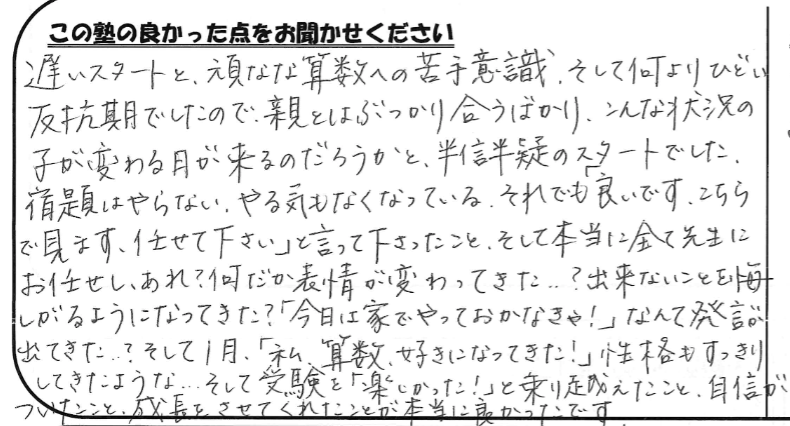 この塾の良かった点をお聞かせください
遅いスタートと、頑なな算数への苦手意識、そして何よりひどい
反抗期でしたので、親とはぶつかり合うばかり、こんな状況の
子が変わる日が来るのだろうかと、半信半疑のスタートでした。
宿題はやらない、やる気もなくなっている、それでも「良いです、こちら
で見ます、任せて下さい」と言って下さったこと、そして本当に全て先生に
お任せし、あれ?何だか表情が変わってきた..?出来ないことを悔
しがるようになってきた?「今日は家でやっておかなきゃ!」なんて発言が
出てきた..?そして1月、「私、算数、好きになってきた!」性格もすっきり
してきたような...そして受験を「楽しかった!」と乗り越えたこと、自信が
ついたこと、成長をさせてくれたことが本当に良かったです。